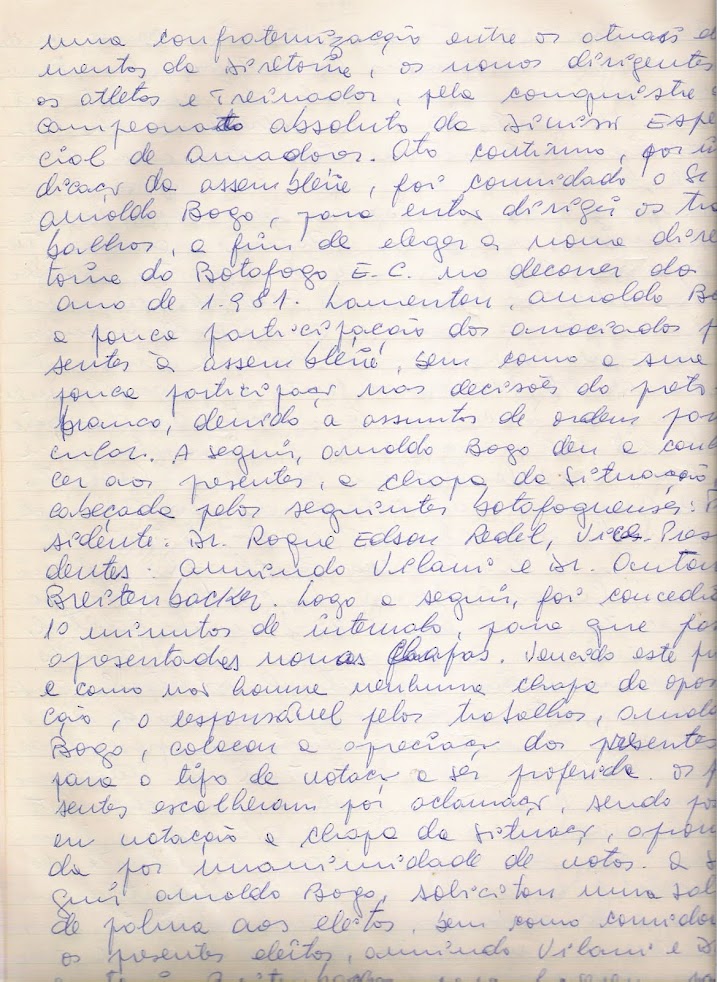 uma confraternização entre os atuais e
mentos da diretoria, os novos dirigentes
os atletas e Treinador, pela conquista
campeonato absoluto da Divisão Espe
cial de amadores. Ato continuo, por in
dicação da assembléia, foi convidado o Sr
Arnoldo Bogo, para então dirigir os tra
balhos, a fim de eleger a nova dire
toria do Botafogo E.C. no decorrer do
ano de 1.981. Lamentou, Arnoldo Bo
a pouca participação dos associados p
sentes à assembléia, bem como a sua
pouca participação nas decisões do preto
branco, devido a assuntos de ordem par
cular. A seguir, Arnoldo Bogo deu a conh
cer aos presentes, a chapa da situação
cabeçada pelos seguintes botafoguenses: P
sidente: Dr. Roque Edson Redel, Vices-Pres
dentes: Armindo Vilani e Dr. Anton
Breitenbacker. Logo a seguir, foi concedi
10 minutos de intervalo, para que fos
apresentadas novas chapas. Vencido este p
e como não houve nenhuma chapa da oposi
ção, o responsável pelos trabalhos, Arnold
Bogo, colocou a apreciação dos presentes
para o tipo de votação a ser proferida. Os p
sentes escolheram por aclamação, sendo po
em votação a chapa da situação, aprova
da por unanimidade de votos. A s
guir Arnoldo Bogo, solicitou uma sal
de palma aos eleitos, bem como convidou
os presentes eleitos, Armindo Vilani e D